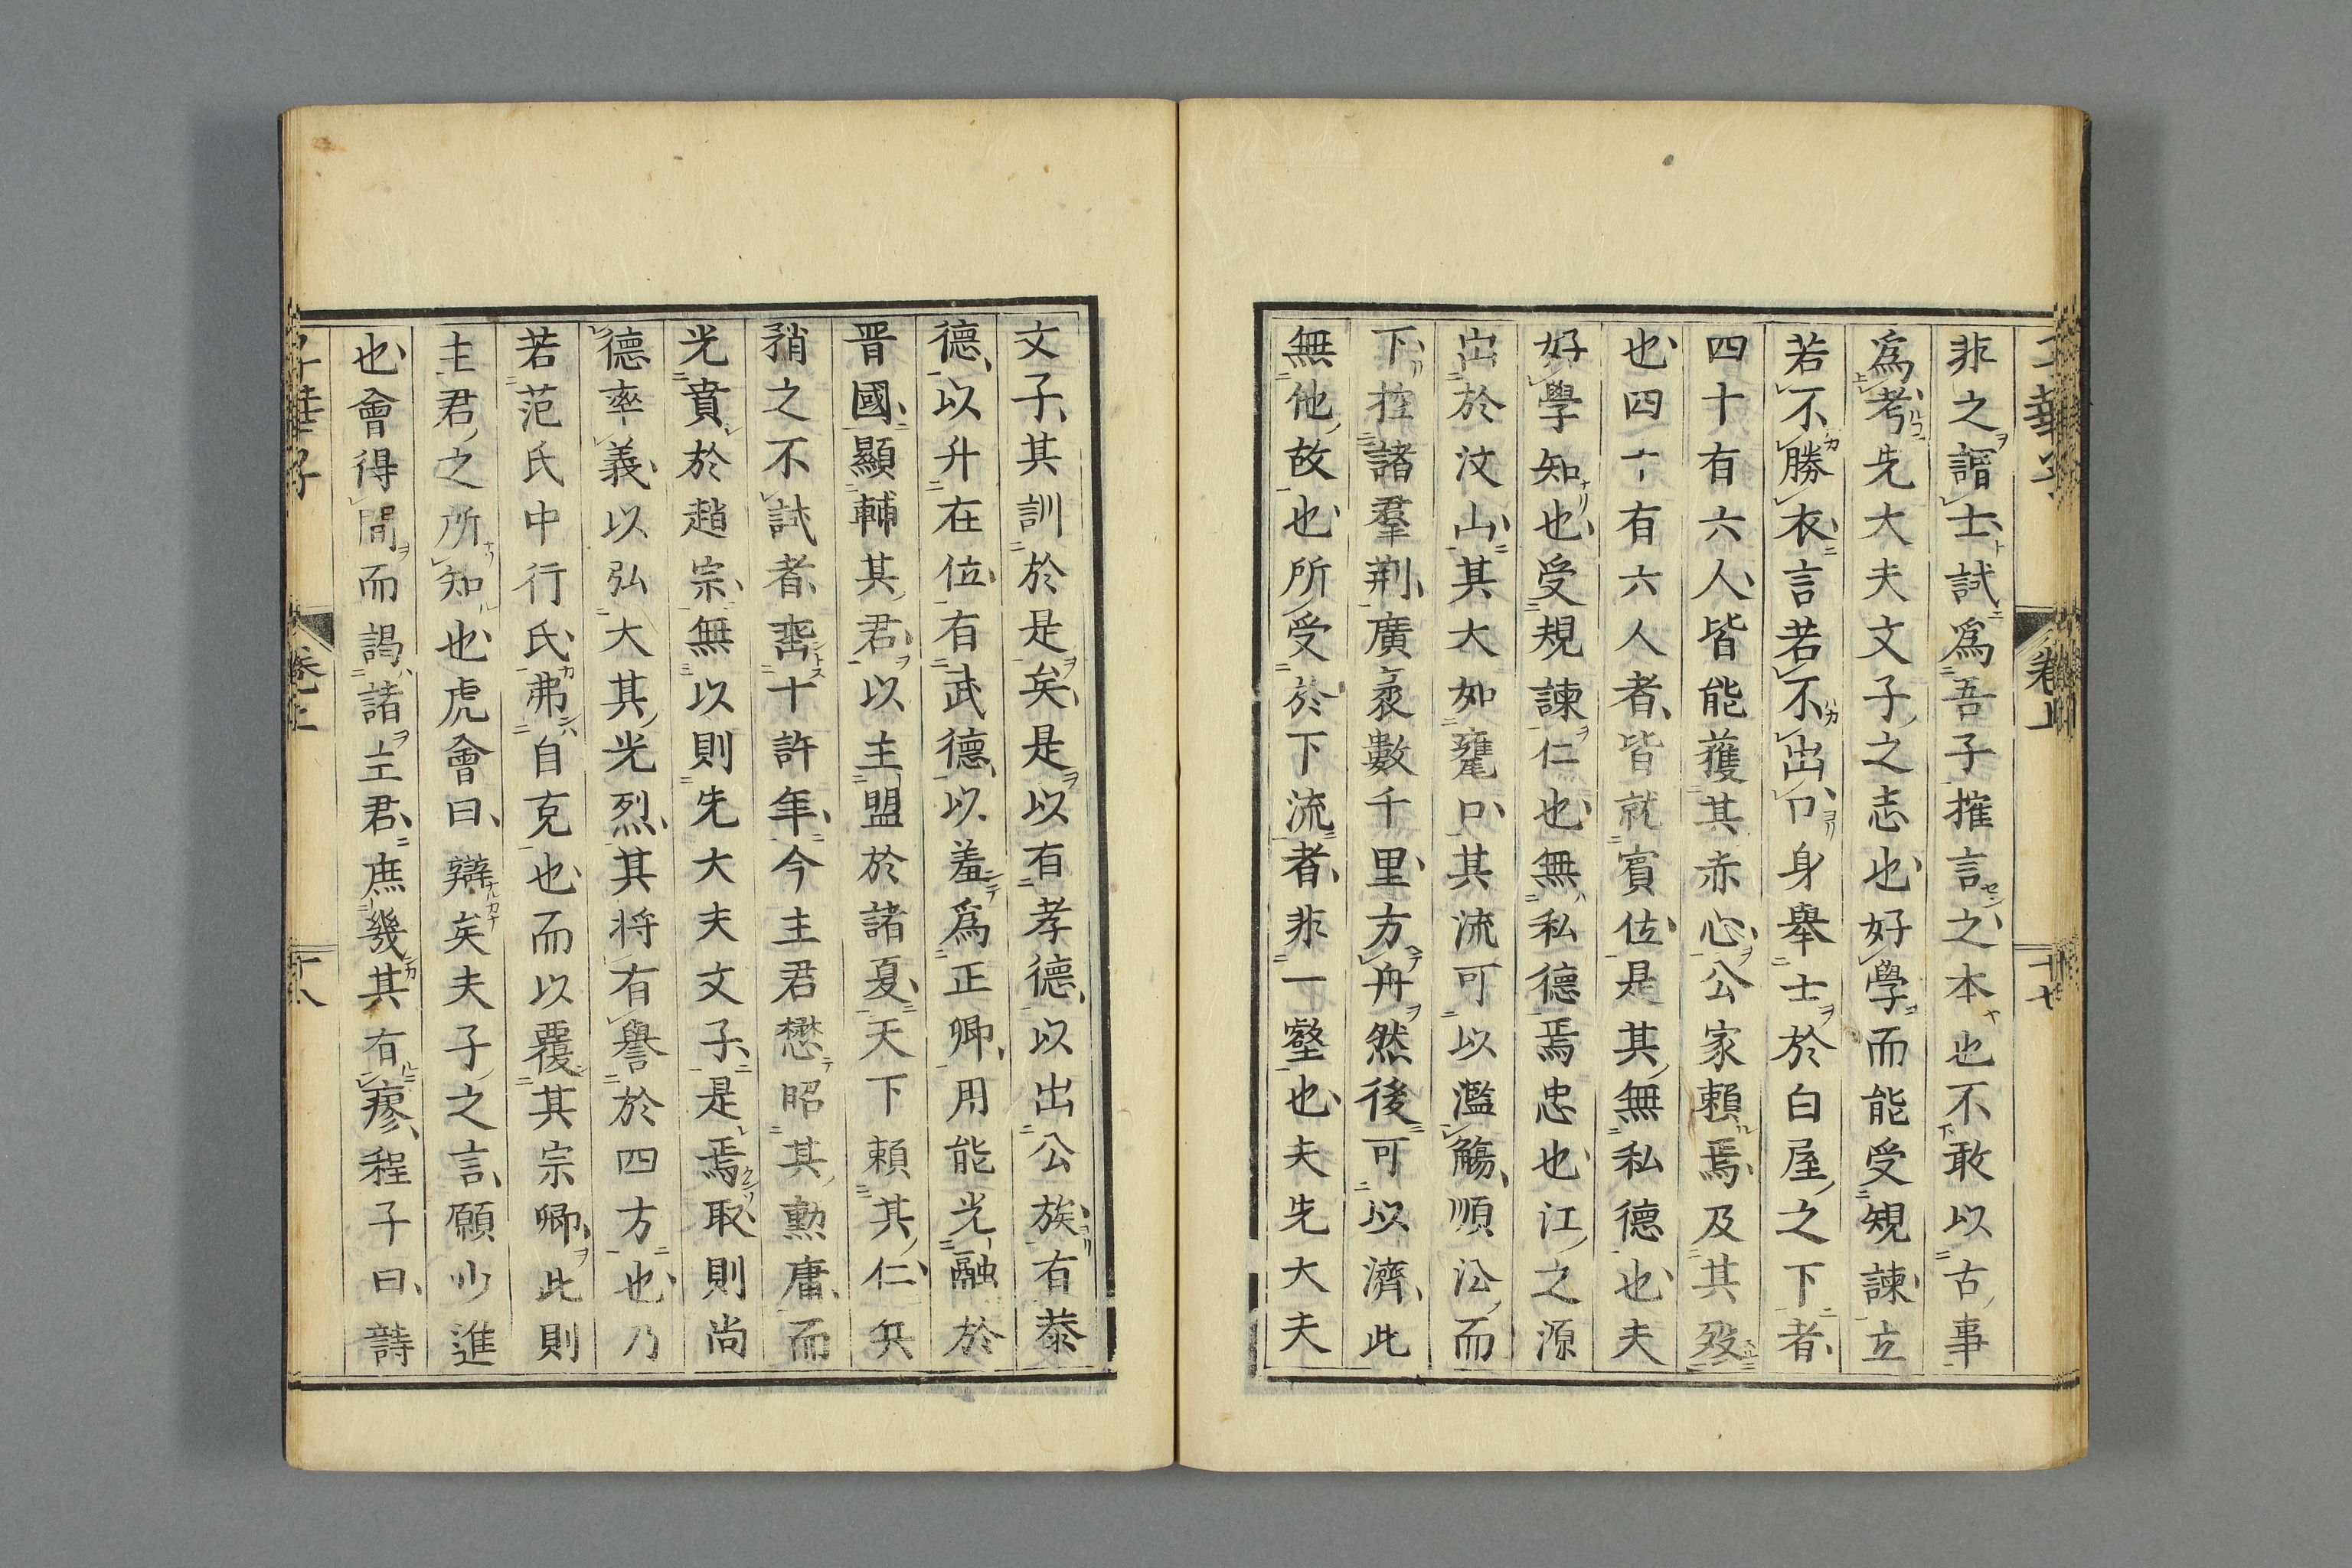 子華子 卷上 十七
非之謂士試爲吾子搉言之本也不敢以古事
爲考先大夫文子之志也好學而能受規諫立
若不勝衣言若不出口身舉士於白屋之下者
四十有六人皆能獲其赤心公家賴焉及其殁
也四十有六人者皆就賓位是其無私德也夫
好學知也受規諫仁也無私德焉忠也江之源
出於汶山其大如甕口其流可以濫觴順㳂而
下控諸羣荆廣袤數千里方舟然後可以濟此
無他故也所受於下流者非一壑也夫先大夫
文子其訓於是矣是以有孝德以出公族有恭
德以升在位有武德以羞爲正卿用能光融於
晋國顯輔其君以主盟於諸夏天下賴其仁兵
矟之不試者䍐十許年今主君懋昭其勲庸而
光賁於趙宗無以則先大夫文子是焉取則尚
德率義以弘大其光烈其將有譽於四方也乃
若范氏中行氏弗自克也而以覆其宗卿此則
主君之所知也虎會曰辯矣夫子之言願少進
也會得間而謁諸主君庶幾其有瘳程子曰詩
子華子 卷上 十八